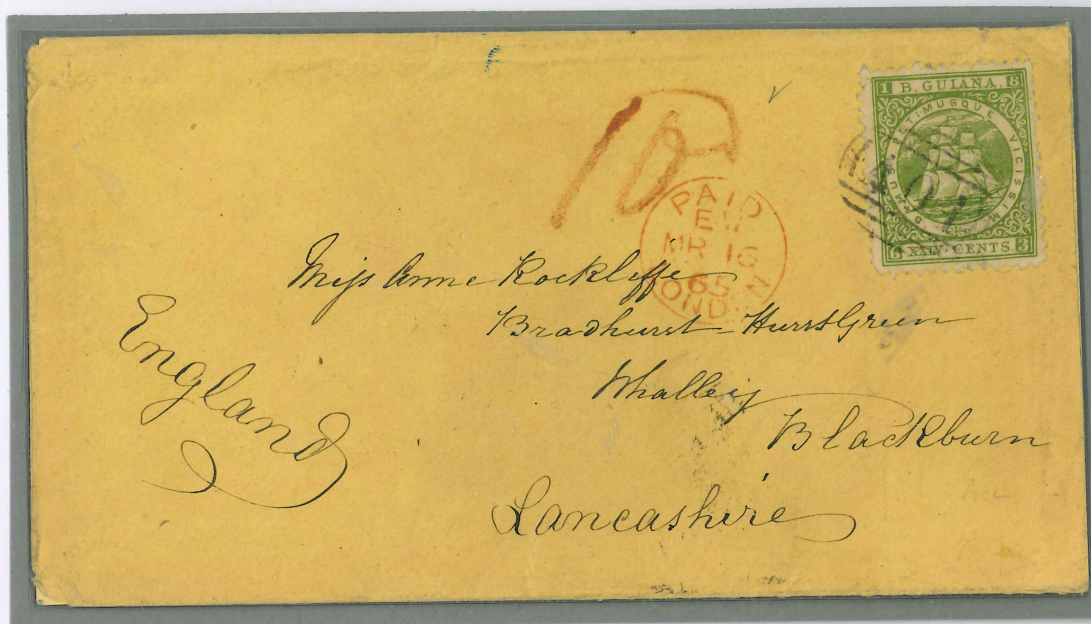 1 B. GUIANA. 8
DAMUS PETIMUSQUE VICISSIM
6 XXIV. CENTS. 3
PAID
EW
MR 16
65
LONDON
Miss Anne Rockliffe
Bradhurst Hurst Green
Whalley
Blackburn
Lancashire
England